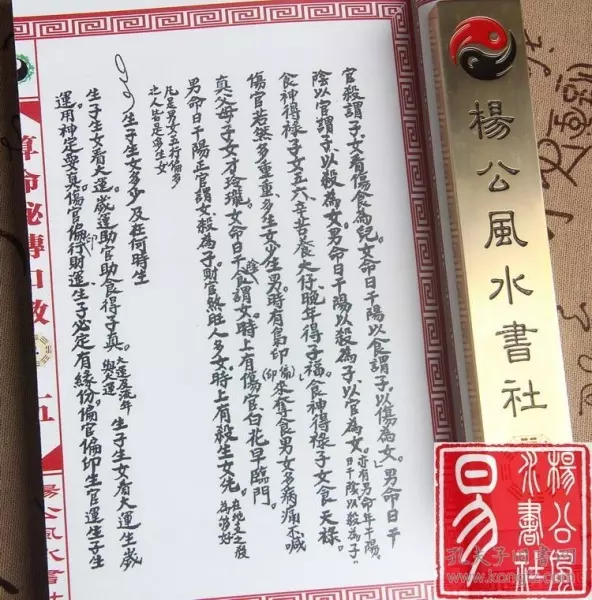 官殺謂子女看傷食為兒女命日干陽以食謂子以傷為女。男命日干
陰以官謂子以殺為女。男命日干陽以殺為子以官為女。
食神得祿子女五六辛苦養大仔晚年得子福食神得祿子女食天祿。
傷官若然多重重多生女少生男時有梟印(偏印)來奪食男女多病痛不喊
真父母子女才玲瓏女命日干陰食謂女時上有傷官白花早臨門。
男命日干陽正官謂女殺為子財官煞旺人多女時上有殺生女先。
凡是男女五行偏多
之人皆是多生女
生子生女多少及在何時生
生子生女看大運。歲運助官助食得子真。大運及流年 生子生女看大運生歲
運用神定要真傷官偏印行財運生子必定有緣份偏官偏印生官運生子生
算命秘傳口教
五
楊公風水書社
楊公風水書社
易
楊公風水書社
孔夫子旧书网